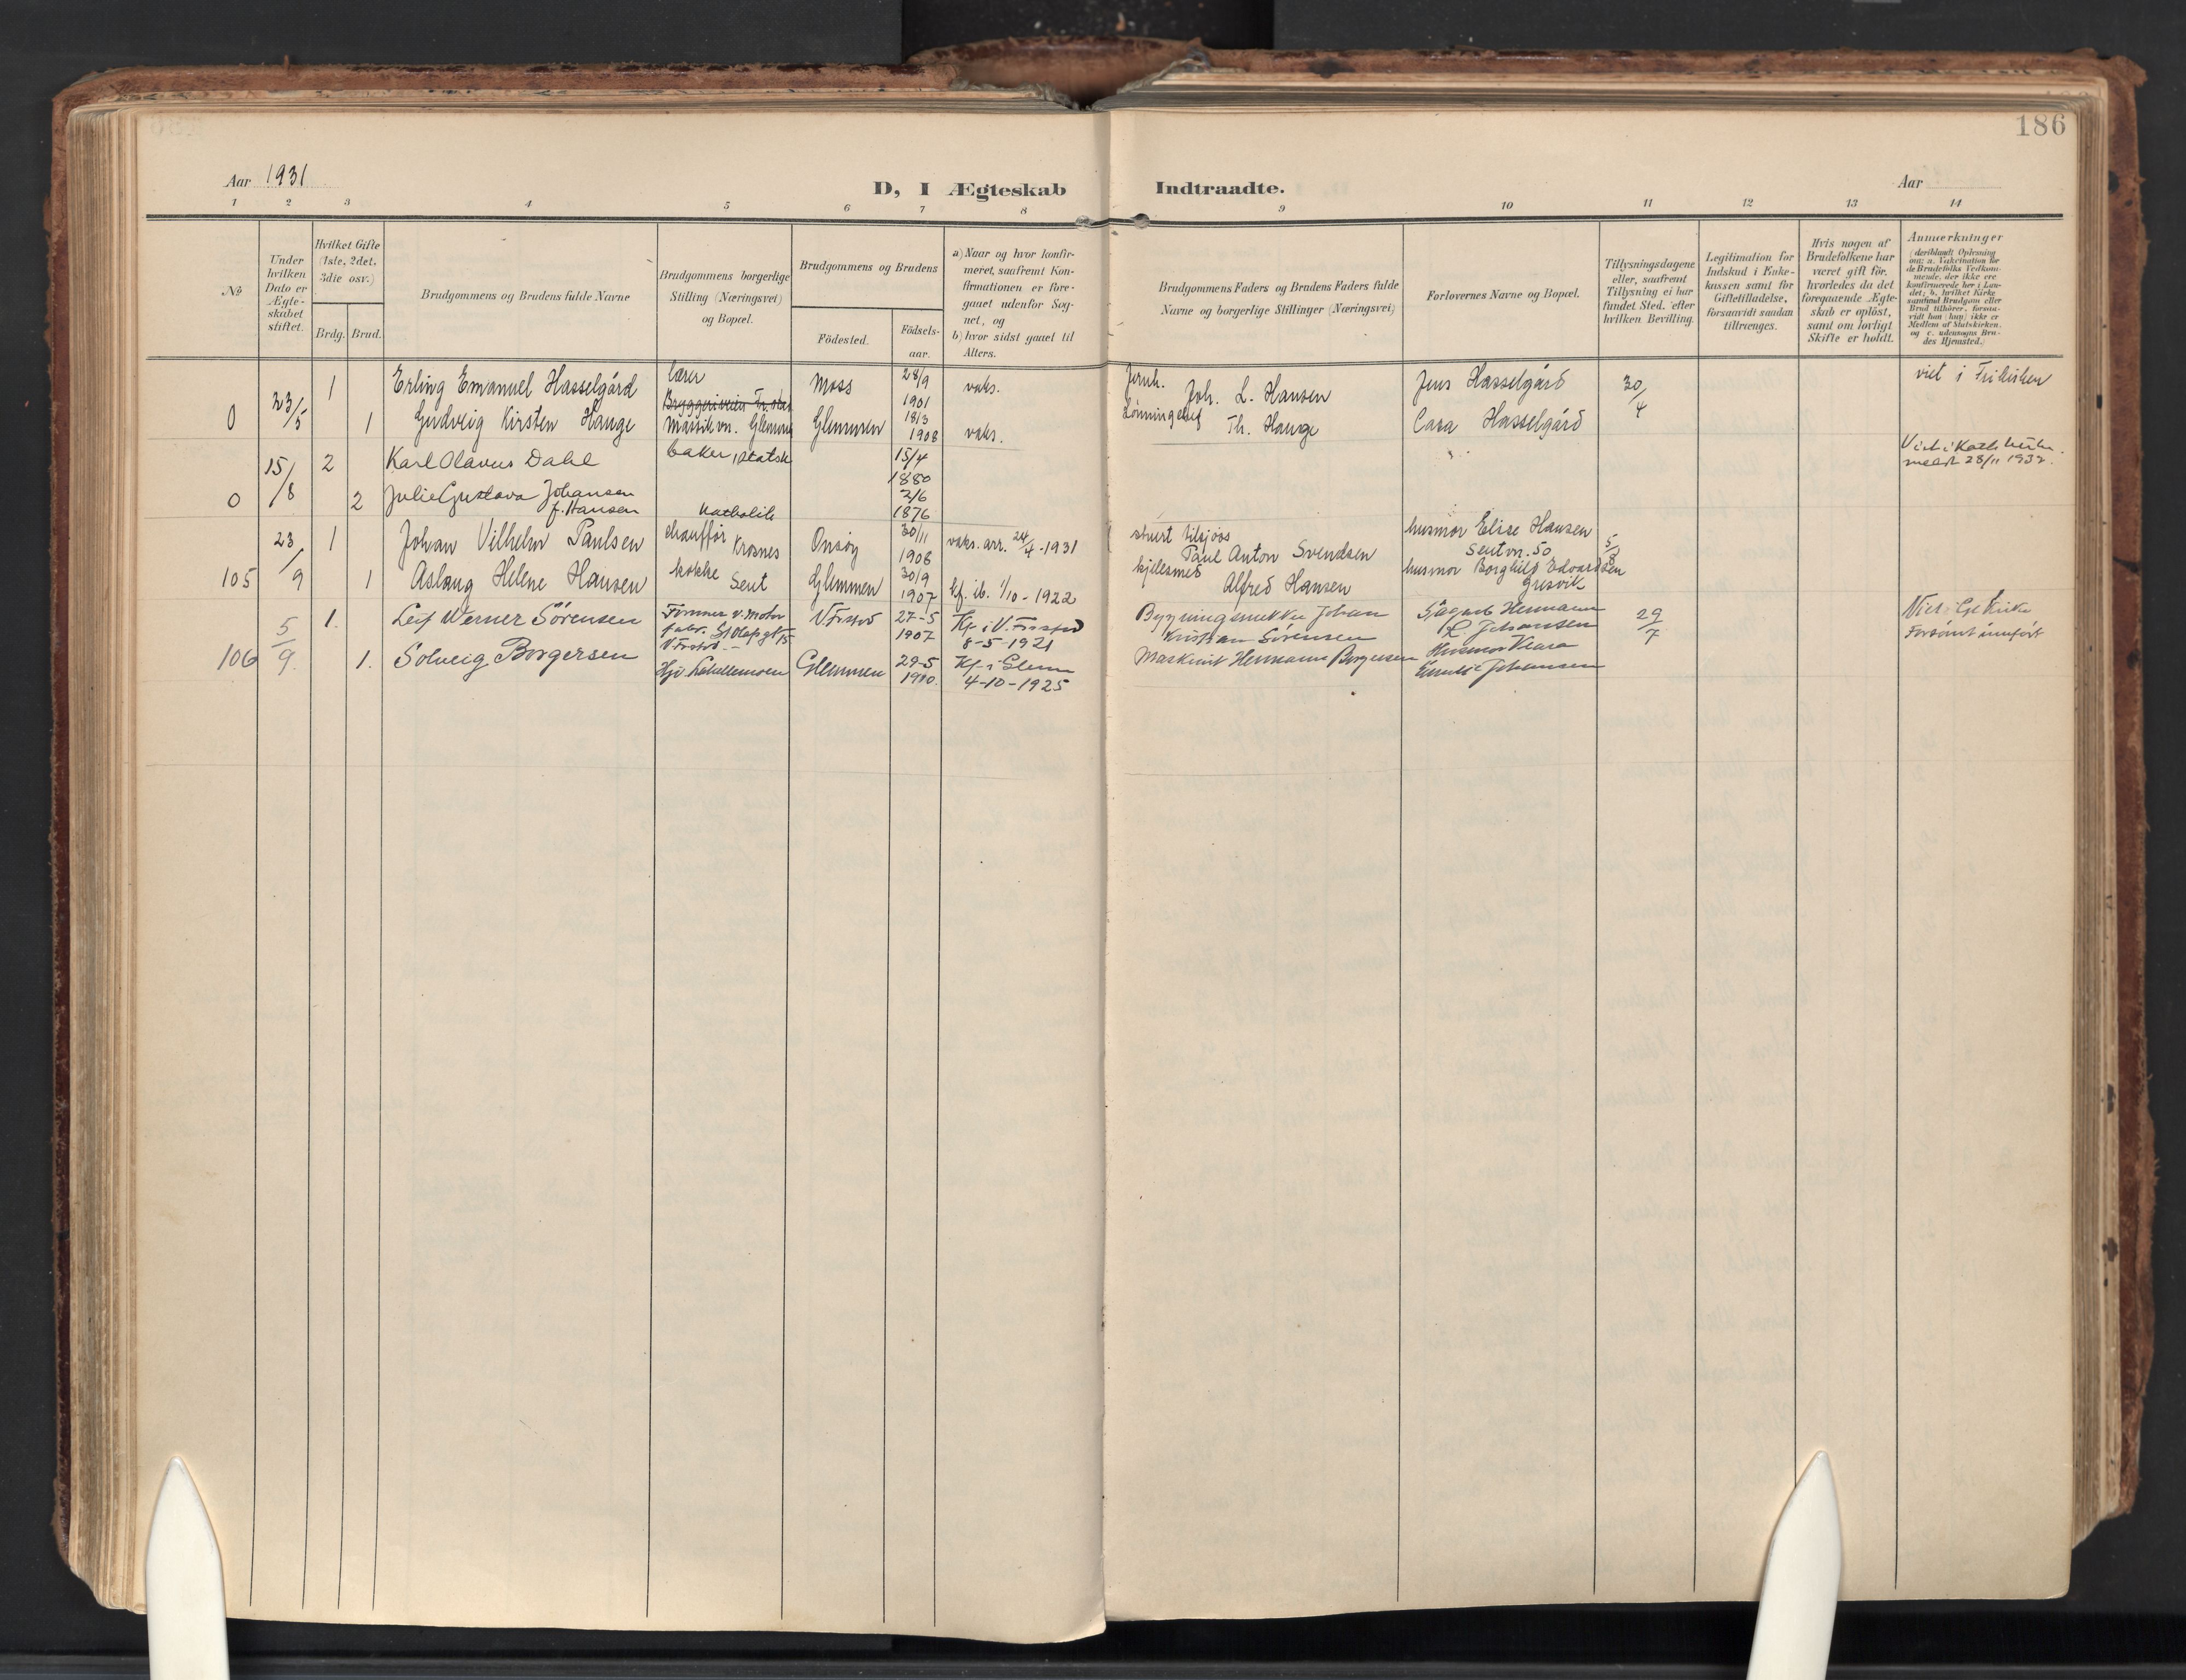 186
Aar 1931
D, I Ægteskab Indtraadte.
Aar
1 2 3 4 5 6 7 8 9 10 11 12 13 14
No
Under
hvilken
Dato er
Ægte-
skabet
stiftet.
Hvilket Gifte
(1ste, 2det,
3die osv.)
Brdg. Brud.
Brudgommens og Brudens fulde Navne
Brudgommens borgerlige
Stilling (Næringsvei)
og Bopæl.
Brudgommens og Brudens
Födested.
Födsels-
aar.
a) Naar og hvor konfir-
meret, saafremt Kon-
firmationen er fore-
gaaet udenfor Sog-
net, og
b) hvor sidst gaaet til
Alters.
Brudgommens Faders og Brudens Faders fulde
Navne og borgerlige Stillinger (Næringsvei)
Forlovernes Navne og Bopæl.
Tillysningsdagene
eller, saafremt
Tillysning ei har
fundet Sted, efter
hvilken Bevilling.
Legitimation for
Indskud i Enke-
kassen samt for
Giftetilladelse,
forsaavidt saadan
tiltrænges.
Hvis nogen af
Brudefolkene har
været gift för,
hvorledes da det
foregaaende Ægte-
skab er oplöst,
samt om lovligt
Skifte er holdt.
Anmerkninger
(deriblandt Oplysning
om: a. Vakcination for
de Brudefolks Vedkom-
mende, der ikke ere
konfirmerede her i Lan-
det; b. hvilket Kirke
samfund Brudgom eller
Brud tilhörer, forsaa-
vidt han (hun) ikke er
Medlem af Statskirken,
og c. udensogns Bru-
des Hjemsted.)
0 23/5 1 Erling Emanuel Hasselgård lærer Moss 28/9 1901 vaks. Joh. L. Hansen Jens Hasselgård 30/4 viet i Frikirken
1 Gudveig Kirsten Hauge Glemmen 18/3 1908 vaks. Th. Hauge Cara Hasselgård
0 15/8 2 Karl Olavus Dahl baker, statsk 15/4 1880
meldt 28/11 1932.
2 Julie Gustava Johansen
f. Hansen Katholik 2/6 1876
105 23/9 1 Johan Vilhelm Paulsen chauffør Krosnes Onsøy 30/11 1908 vaks. arr. 24/4-1931 stuert tilsjøss
Paul Anton Svendsen husmor Elise Hansen
Seutvn. 50 5/8
1 Aslaug Helene Hansen kokke Seut Glemmen 30/9 1907 kf. ib. 1/10-1922 kjelesmed
Alfred Hansen husmor Borghild Edvardsen
Gresvik
106 5/9. 1. Leif Werner Sörensen V. Frstad 27-5 1907 Kf. i V. Frstad
8-5-1921 Johan
Kristian Sörensen Hermann
L. Johansen 29/7
1. Solveig Borgersen Glemmen 29-5 1910. Kf. i Glem
4-10-1925 Maskinist Hermann Borgersen Husmor Klara
Johansen